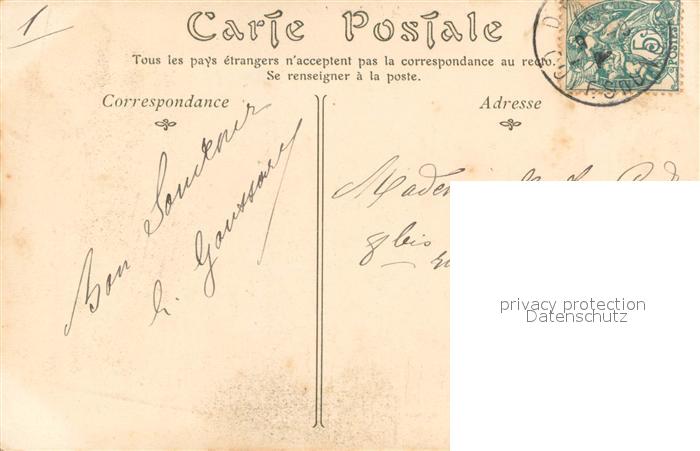 1
Carte Postale
Tous les pays étrangers n'acceptent pas la correspondance au recto.
Se renseigner à la poste.
Correspondance
Adresse
Bon Souvenir
8 bis
privacy protection
Datenschutz
5
Postes